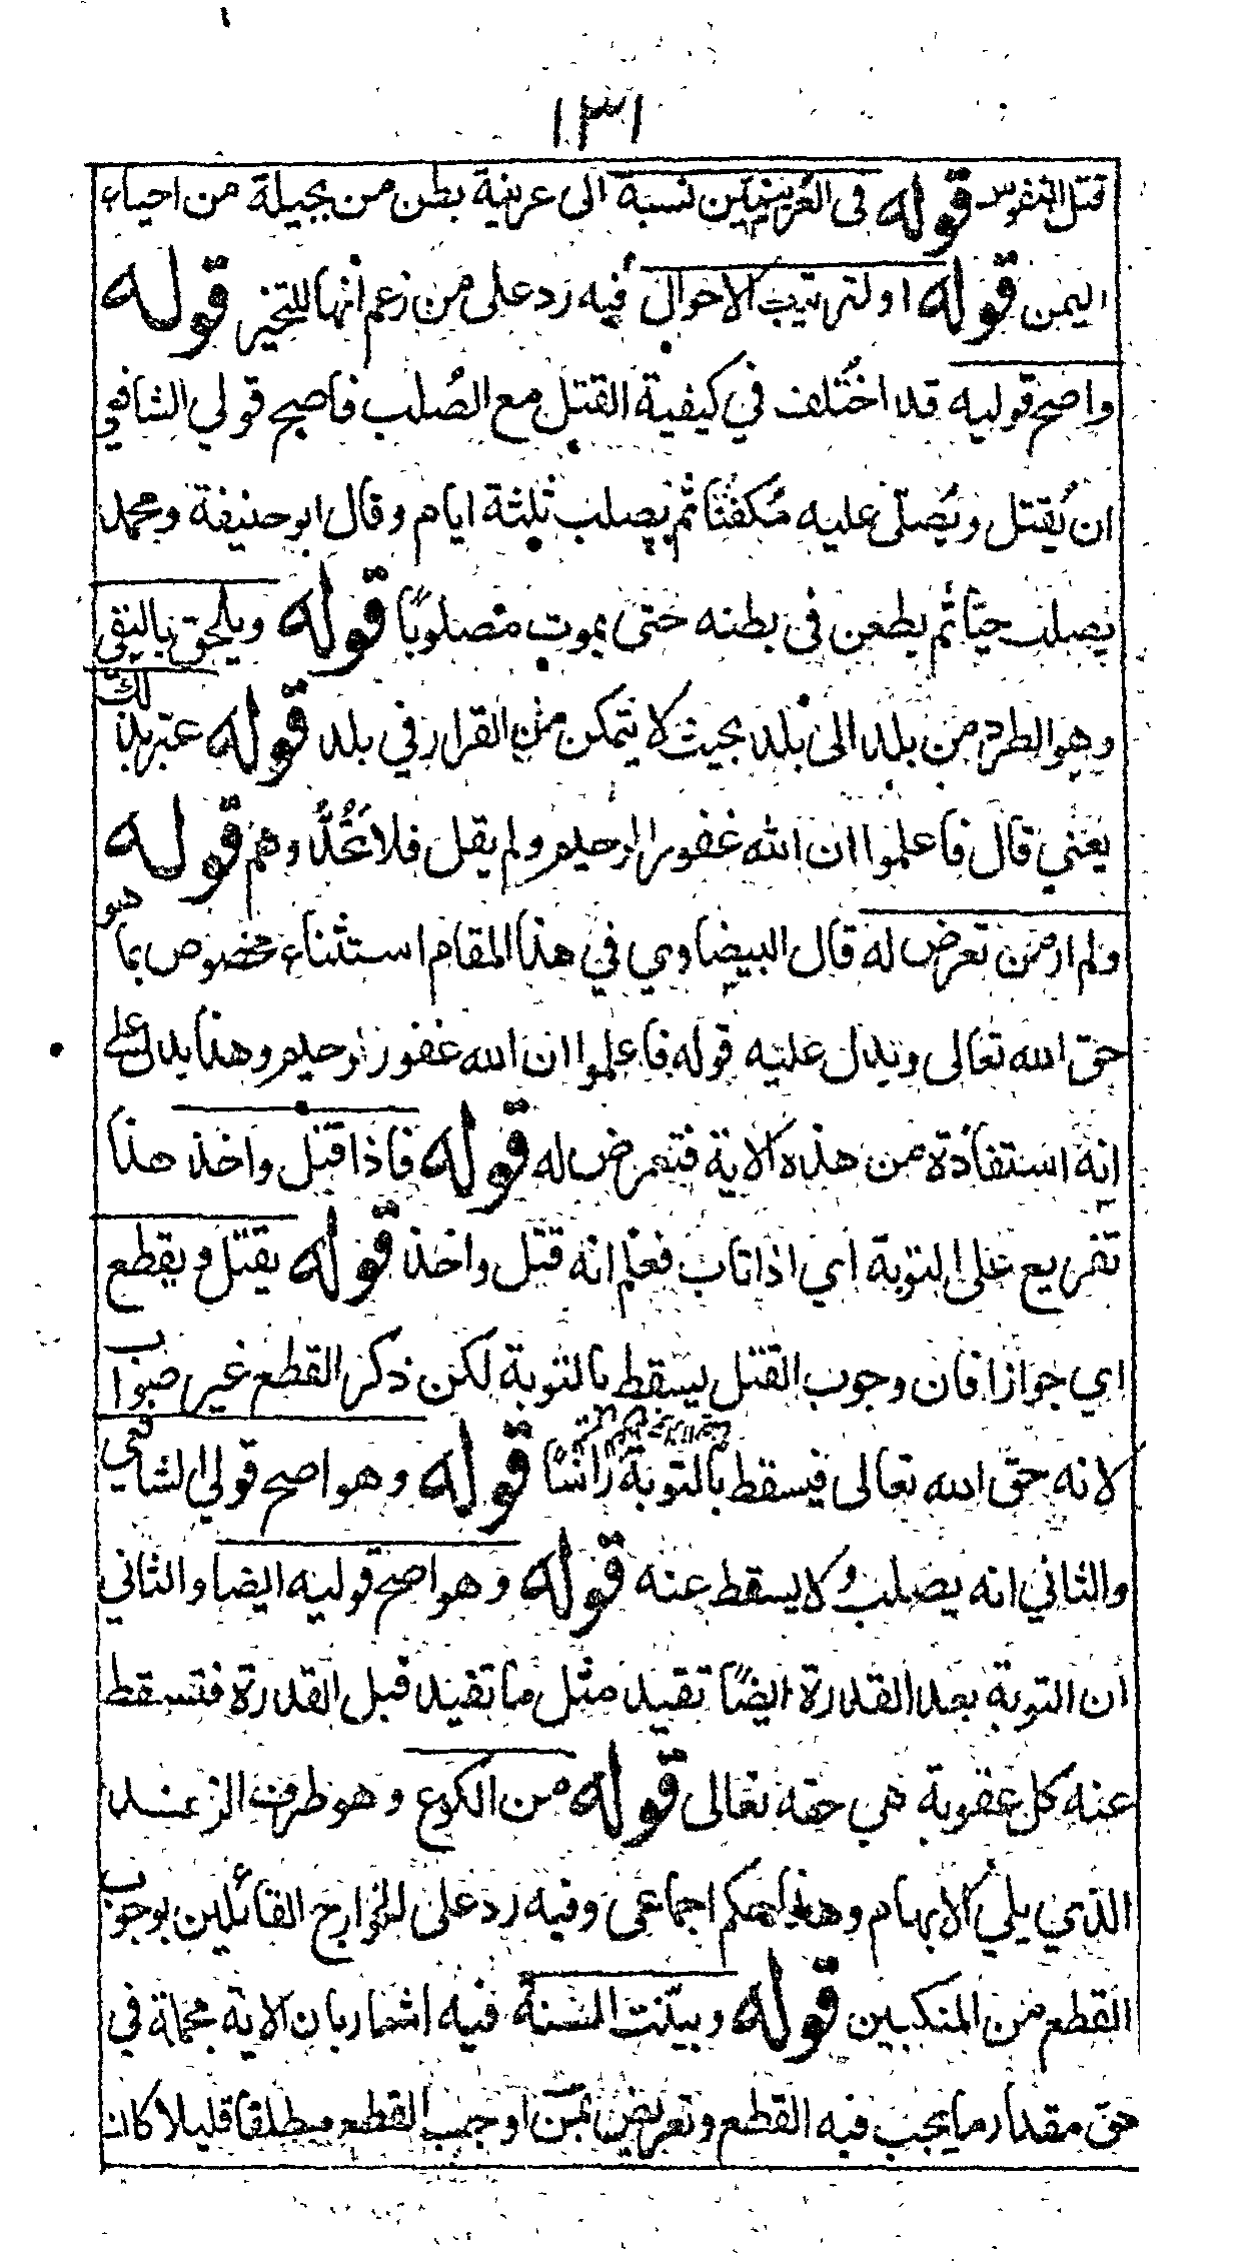 ١٣١
قتل النفوس قوله في العرنيين نسبة الى عرينة بطن من بجيلة من احياء
اليمن قوله او لترتيب الاحوال فيه رد على من زعم انها للتخير قوله
واصح قوليه قد اختلف في كيفية القتل مع الصلب فاصح قولي الشافعي
ان يُقتل ويُصلّى عليه مُكفّنا ثم يصلب ثلثة ايام وقال ابو حنيفة ومحمد
يصلب حيّا ثم يطعن في بطنه حتى يموت مصلوبًا قوله ويلحق بالنفي
وهو الطرد من بلد الى بلد بحيث لا يتمكن من القرار في بلد قوله عبّر بذلك
يعني قال فاعلموا ان الله غفور الرحيم ولم يقل فلا تَحُدُّوهم قوله
ولم ار من تعرض له قال البيضاوي في هذا المقام استثناء مخصوص بما هو
حق الله تعالى ويدل عليه قوله فاعلموا ان الله غفور رحيم وهذا يدل على
انه استفادة من هذه الاية فتعرض له قوله فاذا قتل واخذ هذا
تفريع على التوبة اي اذا تاب فعلم انه قتل واخذ قوله يقتل ويقطع
اي جوازا فان وجوب القتل يسقط بالتوبة لكن ذكر القطع غير صواب
لانه حقّ الله تعالى فيسقط بالتوبة رأسًا قوله وهو اصح قولي الشافعي
والثاني انه يصلب ولا يسقط عنه قوله وهو اصح قوليه ايضا والثاني
ان التوبة بعد القدرة ايضًا تفيد مثل ما تفيد قبل القدرة فتسقط
عنه كل عقوبة هي حقه تعالى قوله من الكوع وهو طرف الزند
الذي يلي الابهام وهذا حكم اجماعى وفيه رد على الخوارج القائلين بوجوب
القطع من المنكبين قوله وبيّنت السنة فيه اشعار بان الاية مجملة في
حق مقدار ما يجب فيه القطع وتعريض بمن اوجب القطع مطلقا قليلا كان